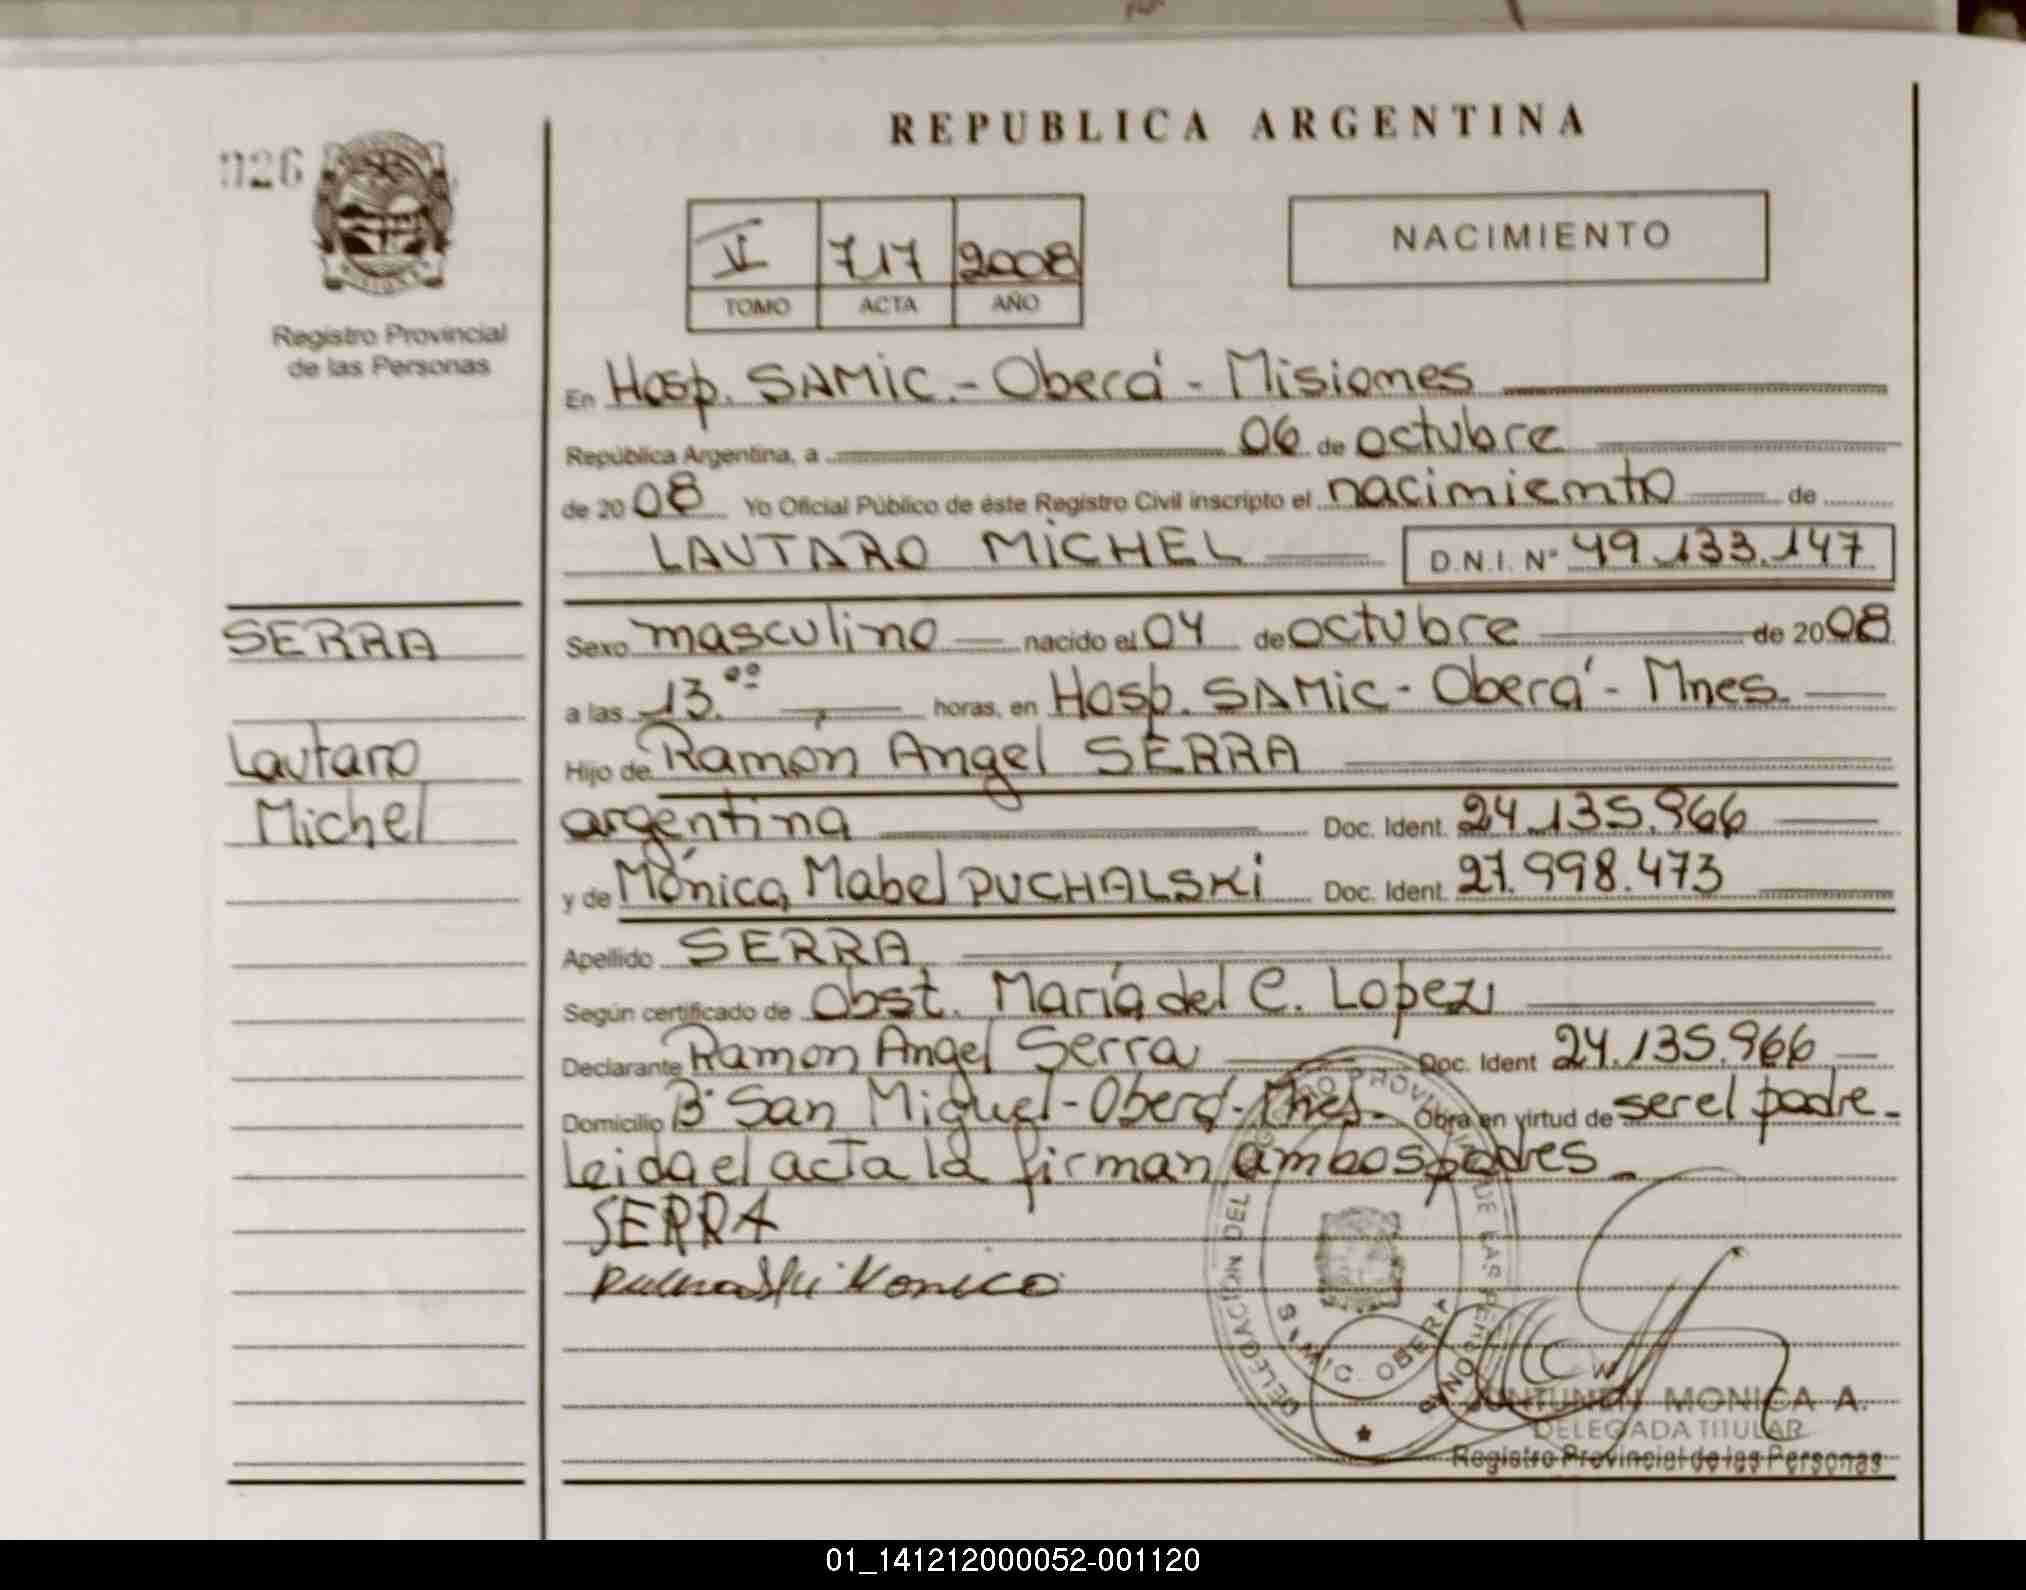 REPUBLICA ARGENTINA
026
V 717 2008
TOMO ACTA AÑO
NACIMIENTO
Registro Provincial
de las Personas
En Hosp. SAMIC.- Oberá - Misiones
República Argentina, a 06 de octubre
de 2008 Yo Oficial Público de éste Registro Civil inscripto el nacimiento de
LAUTARO MICHEL D.N.I. Nº 49.133.147
SERRA
Lautaro
Michel
Sexo masculino nacido el 04 de octubre de 2008
a las 13.ºº horas, en Hosp. SAMIC - Oberá - Mnes.
Hijo de Ramón Angel SERRA
argentina Doc. Ident. 24.135.966
y de Mónica Mabel PUCHALSKI Doc. Ident. 27.998.473
Apellido SERRA
Según certificado de Obst. María del C. Lopez
Declarante Ramon Angel Serra Doc. Ident 24.135.966
Domicilio Bº San Miguel - Oberá - Mnes. Obra en virtud de ser el padre -
leida el acta la firman ambos padres -
SERRA
Puchalski Monica
DELEGACION DEL REGISTRO PROVINCIAL DE LAS PERSONAS
SAMIC. OBERA
MONICA A.
DELEGADA TITULAR
Registro Provincial de las Personas
01_141212000052-001120